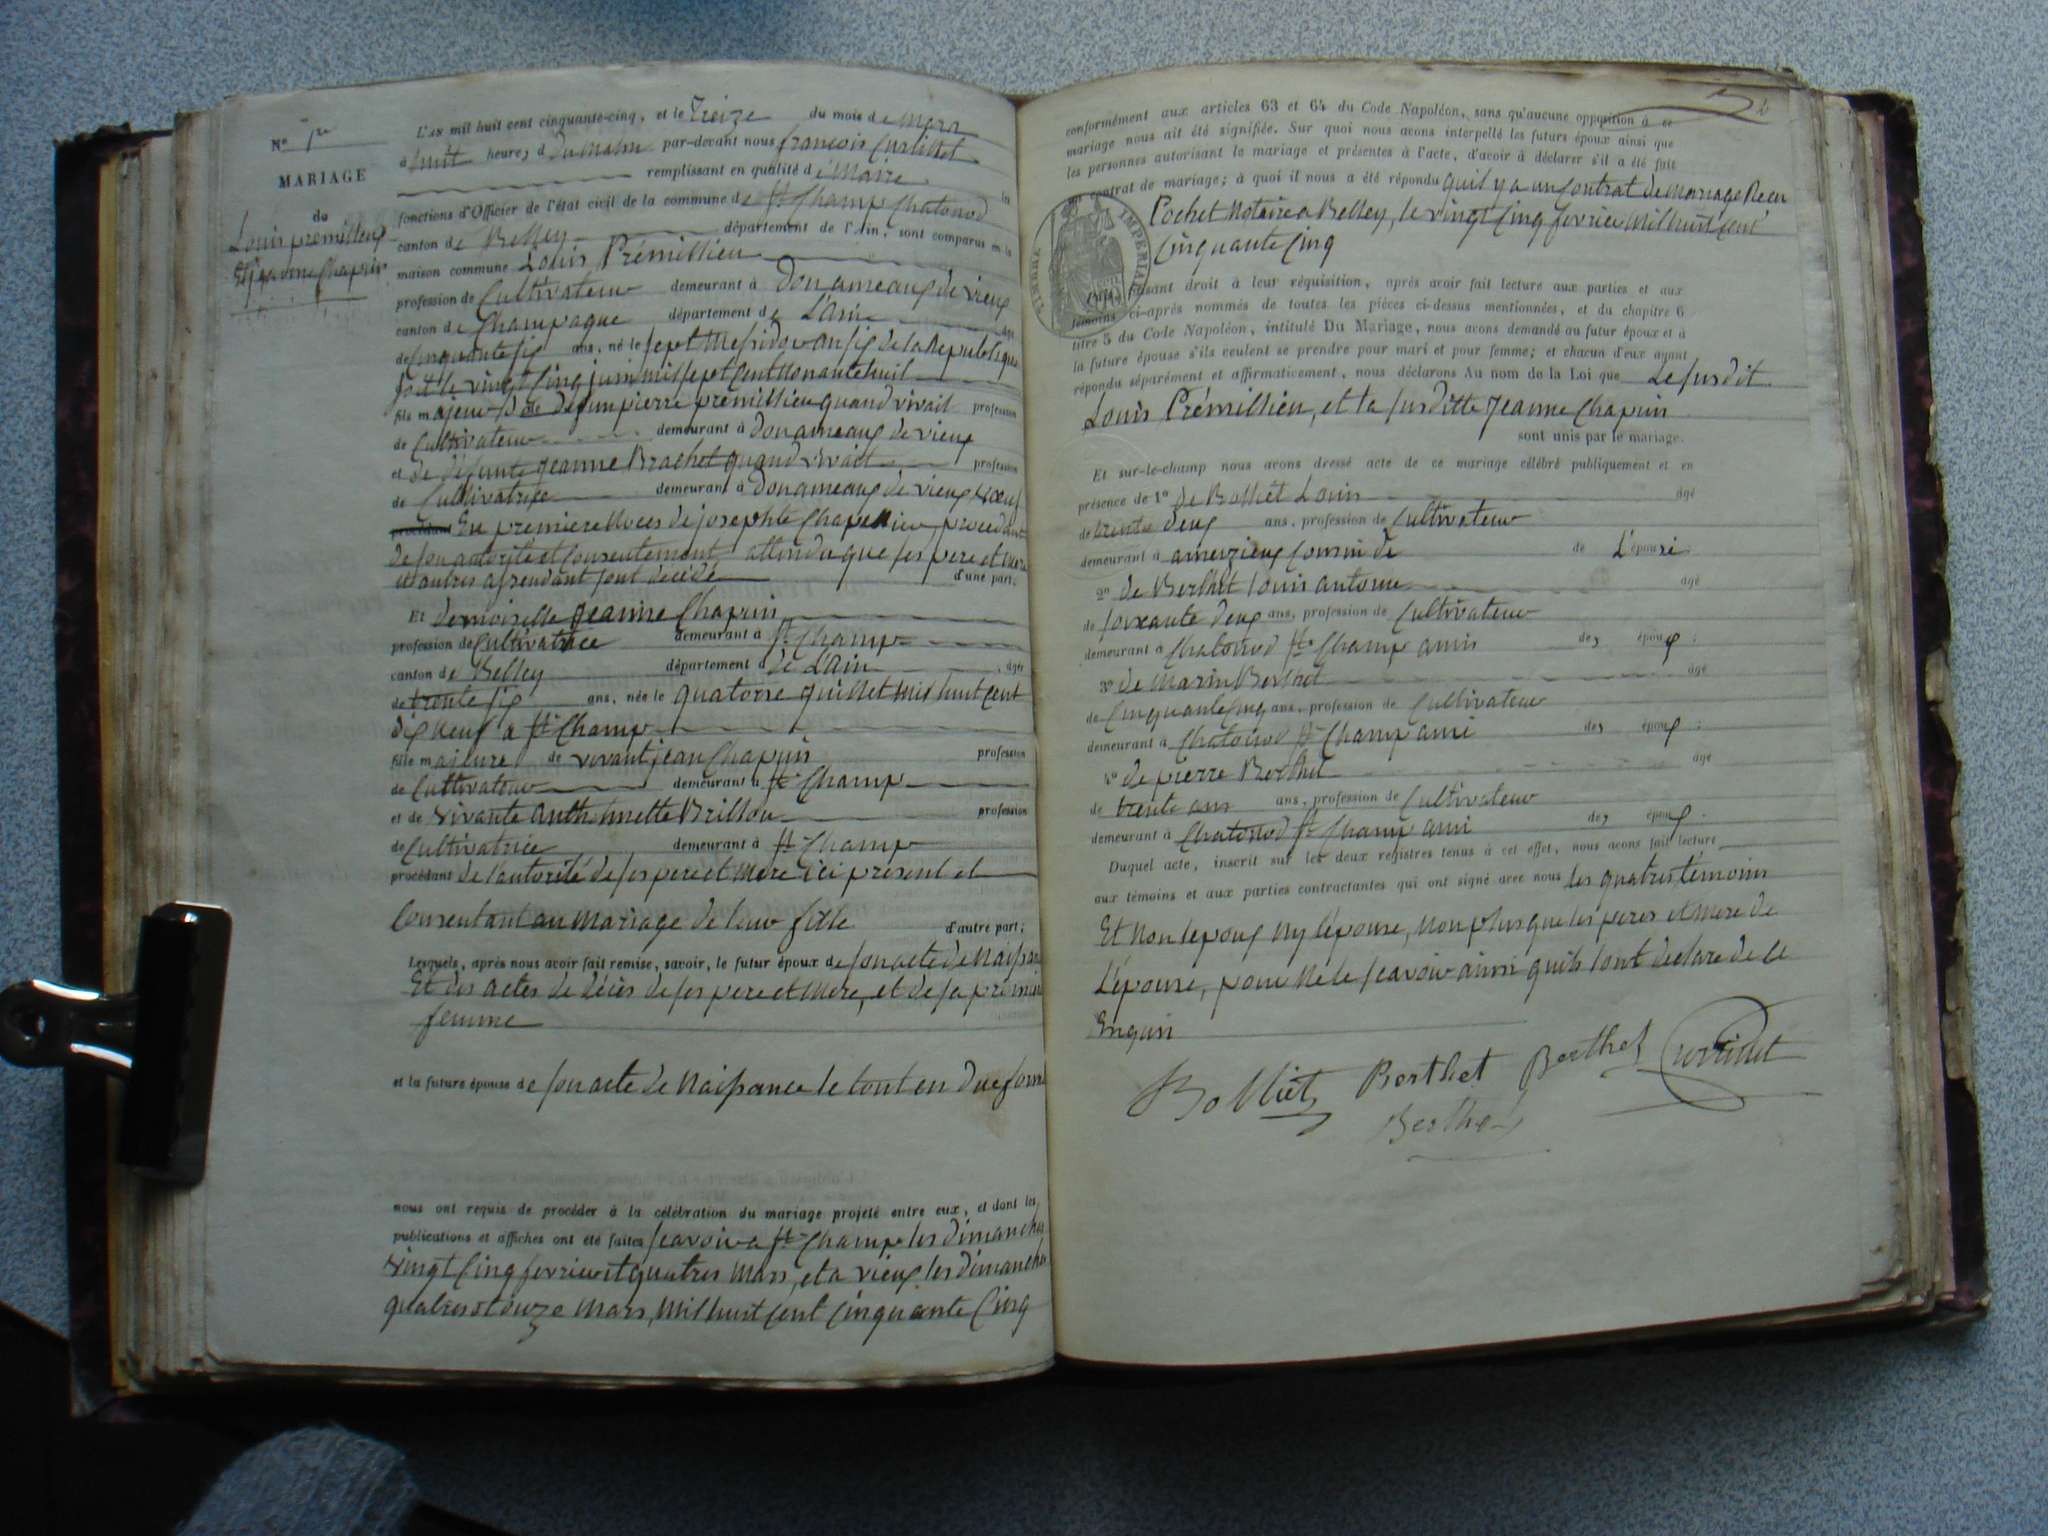 No 1er
MARIAGE
du
Louis premillieu
Et jeanne Chapuis
L'an mil huit cent cinquante-cinq, et le Treize du mois de Mars
à huit heures d du Matin par-devant nous francois
remplissant en qualité de Maire les
fonctions d'Officier de l'état civil de la commune de St Champ Chatonod
canton de Belley département de l'Ain, sont comparus en la
maison commune Louis Prémillieu
profession de Cultivateur demeurant à Donameaux de vieux
canton de Champagne département de L'ain âgé
de Cinquante six ans, né le sept Messidor an six de la Republique
soit le vingt Cinq juin mil sept Cent Nonante huit
fils majeur de defun pierre premillieu quand vivait profession
de Cultivateur demeurant à Donameaux de vieux
et de défunte jeanne Brachet quand vivait profession
de Cultivatrice demeurant à Donameaux de vieux veuf
En premiere Noces de josephte Chapellieu procedant
de son autorité et Consentement attendu que ses pere et mere
et autres assendant sont décédé d'une part;
Et demoiselle jeanne Chapuis
profession de Cultivatrice demeurant à St Champ
canton de Belley département d de L'ain âgée
de trente six ans, née le quatorse juillet mil huit cent
dix neuf a St Champ
fille majeure de vivant jean Chapuis profession
de Cultivateur demeurant à St Champ
et de vivante anthelmette Brillou profession
de Cultivatrice demeurant à St Champ
procédant de l'autorité de ses pere et mere ici present et
Consentant au Mariage de leur fille d'autre part;
Lesquels, après nous avoir fait remise, savoir, le futur époux de son acte de Naissance
Et des actes de décès de ses pere et Mere, et de sa premiere
femme
et la future épouse de son acte de Naissance le tout en due forme
nous ont requis de procéder à la célébration du mariage projeté entre eux, et dont les
publications et affiches ont été faites scavoir a St Champ les dimanches
vingt Cinq fevrier et quatres Mars, et a vieux les dimanches
quatres et onze Mars, Mil huit Cent Cinquante Cinq
2
conformément aux articles 63 et 64 du Code Napoléon, sans qu'aucune opposition à ce
mariage nous ait été signifiée. Sur quoi nous avons interpellé les futurs époux ainsi que
les personnes autorisant le mariage et présentes à l'acte, d'avoir à déclarer s'il a été fait
contrat de mariage; à quoi il nous a été répondu quil y a un Contrat de Mariage Recu
Pochet Notaire a Belley, le vingt Cinq fevrier Mil huit Cent
Cinquante Cinq
TIMBRE IMPERIAL
faisant droit à leur réquisition, après avoir fait lecture aux parties et aux
témoins ci-après nommés de toutes les pièces ci-dessus mentionnées, et du chapitre 6
titre 5 du Code Napoléon, intitulé Du Mariage, nous avons demandé au futur époux et à
la future épouse s'ils veulent se prendre pour mari et pour femme; et chacun d'eux ayant
répondu séparément et affirmativement, nous déclarons Au nom de la Loi que Le susdit
Louis Prémillieu, et la susditte jeanne Chapuis
sont unis par le mariage.
Et sur-le-champ nous avons dressé acte de ce mariage célébré publiquement et en
présence de 1º de Bolliet Louis âgé
de trente deux ans, profession de Cultivateur
demeurant à ameyzieux Cousin de de L'épouse
2º de Berthet Louis antoine âgé
de soixante deux ans, profession de Cultivateur
demeurant à Chatonod St Champ amis des époux;
3º de Marin Berthet âgé
de Cinquante Cinq ans, profession de Cultivateur
demeurant à Chatonod St Champ ami des époux;
4º de pierre Berthet âgé
de trente ans ans, profession de Cultivateur
demeurant à Chatonod St Champ ami des époux.
Duquel acte, inscrit sur les deux registres tenus à cet effet, nous avons fait lecture
aux témoins et aux parties contractantes qui ont signé avec nous les quatres témoins
Et Non lepoux Ny lépouse, Non plus que les peres et Mere de
L'épouse, pour Ne le scavoir ainsi quils l'ont declare de ce
Enquis
Bolliet Berthet Berthet
Berthet